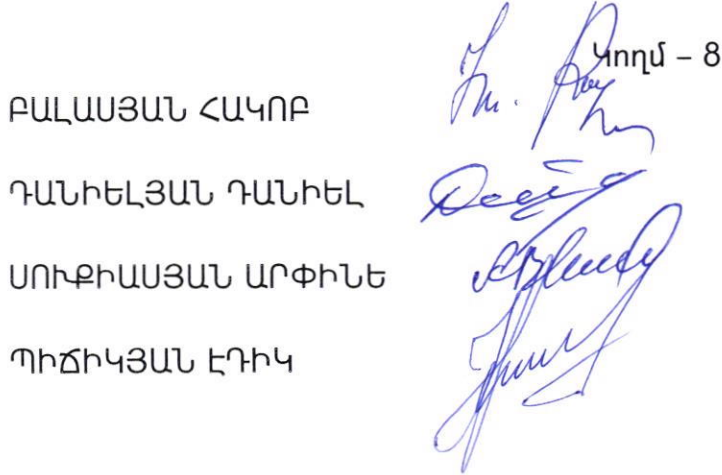 Կողմ – 8
ԲԱԼԱՍՅԱՆ ՀԱԿՈԲ
ԴԱՆԻԵԼՅԱՆ ԴԱՆԻԵԼ
ՍՈՒՔԻԱՍՅԱՆ ԱՐՓԻՆԵ
ՊԻՃԻԿՅԱՆ ԷԴԻԿ